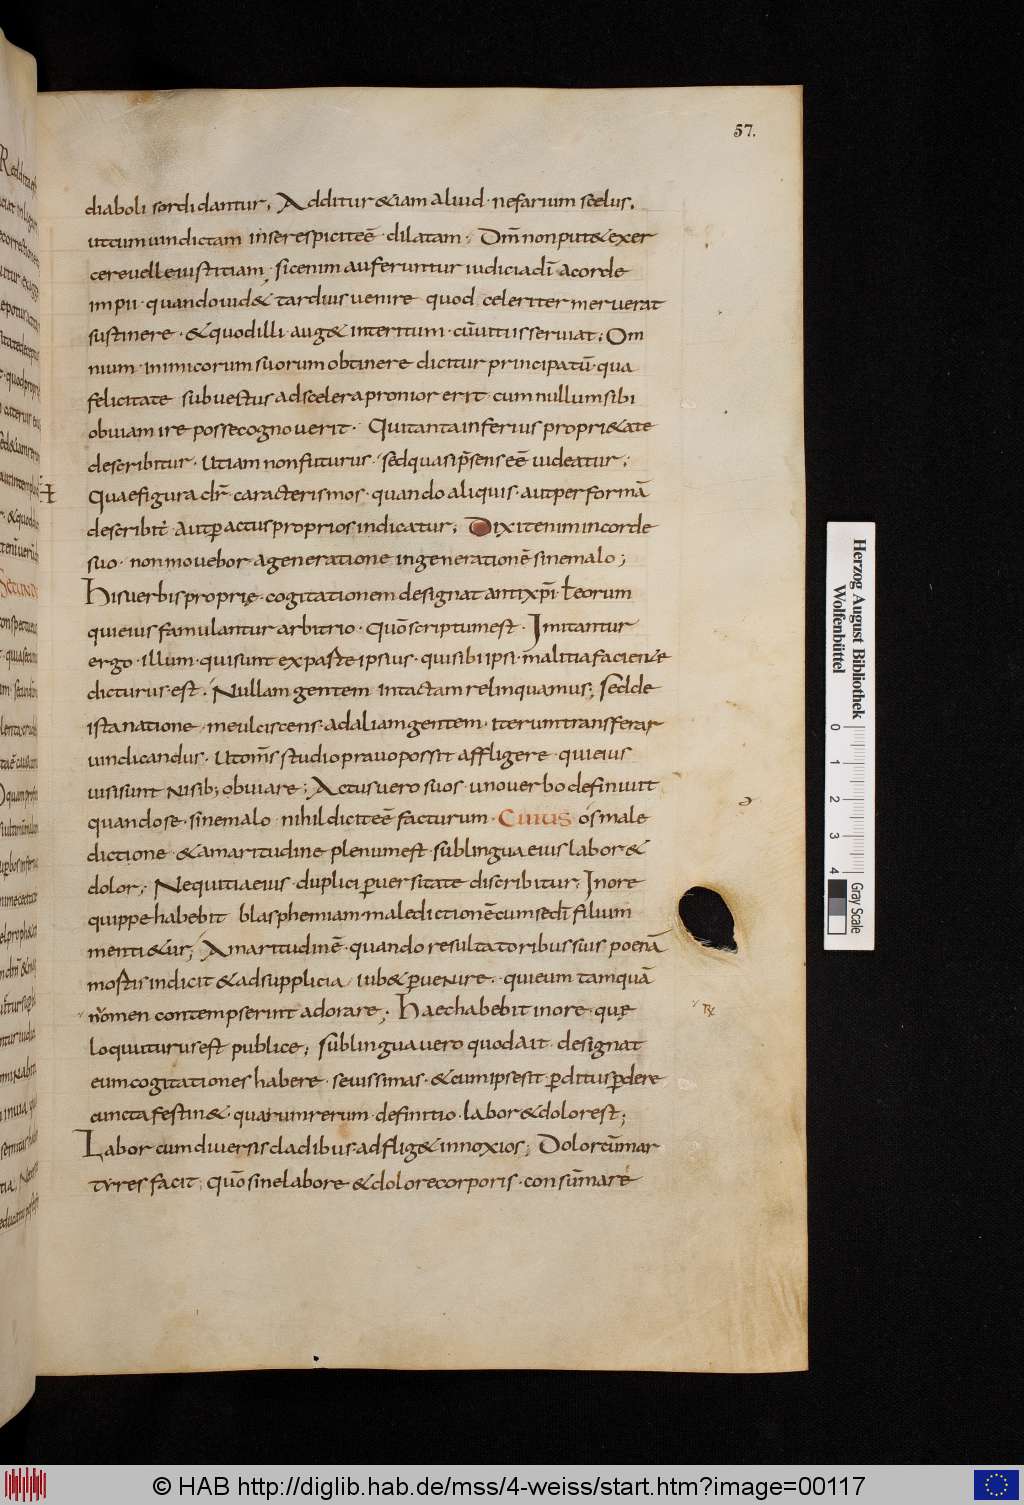 57.
diaboli sordidantur. Additur &iam aliud · nefarium scelus.
ut cum uindictam inse respicit eē · dilatam; Dn̄m non put& exer
cere uelle iustitiam; sic enim auferuntur iudicia dī a corde
impii · quando uid& tardius uenire quod celeriter meruerat
sustinere · & quod illi · aug& interitum · cū uitiis seruiat; Om
nium · inimicorum suorum obtinere dicitur principatū · qua
felicitate subuectus ad scelera pronior erit · cum nullum sibi
obuiam ire posse cognouerit · Qui tanta inferius propri&ate
describitur · ut iam non futurus · sed quasi p̄sens eē uideatur;
Quae figura dr̄ · caracterismos · quando aliquis · aut per formā
describit̄ · aut ꝑ actus proprios indicatur; Dixit enim in corde
suo · non mouebor a generatione in generationē sine malo;
His uerbis proprię · cogitationem designat antixp̄i · ł eorum
qui eius famulantur arbitrio · Quō scriptum est · Imitantur
ergo · illum · qui sunt ex parte ipsius · qui sibi ipsi · malitia faciente
dicturus est · Nullam gentem intactam relinquamus; sed de
ista natione · me ulciscens · ad aliam gentem · iterum transferar
uindicandus · ut om̄s studio prauo possit affligere · qui eius
uisi sunt nisib; obuiare; Actus uero suos · uno uerbo definiuit
quando se · sine malo · nihil dicit eē facturum · Cuius os male
dictione · & amaritudine plenum est · sub lingua eius labor &
dolor; Nequitia eius · duplici ꝑuersitate discribitur; In ore
quippe habebit blasphemiam · maledictionē cum se dī filium
menti&ur; Amaritudinē · quando resultatoribus suis poenā
mostis indicit & ad supplicia iub& ꝑuenire · qui eum tamquā
nomen contempserint adorare; Haec habebit in ore · quę
loquiturus est publice; sub lingua uero quod ait · designat
eum cogitationes habere · seuissimas · & cum ipse sit · ꝑditus ꝑdere
cuncta festin& · quarum rerum · definitio · labor & dolor est;
Labor cum diuersis cladibus · adflig& innoxios; Dolor cū mar
tyres facit; quō sine labore & dolore corporis · consūmare
Herzog August Bibliothek
Wolfenbüttel
0 1 2 3 4
Gray Scale
© HAB http://diglib.hab.de/mss/4-weiss/start.htm?image=00117